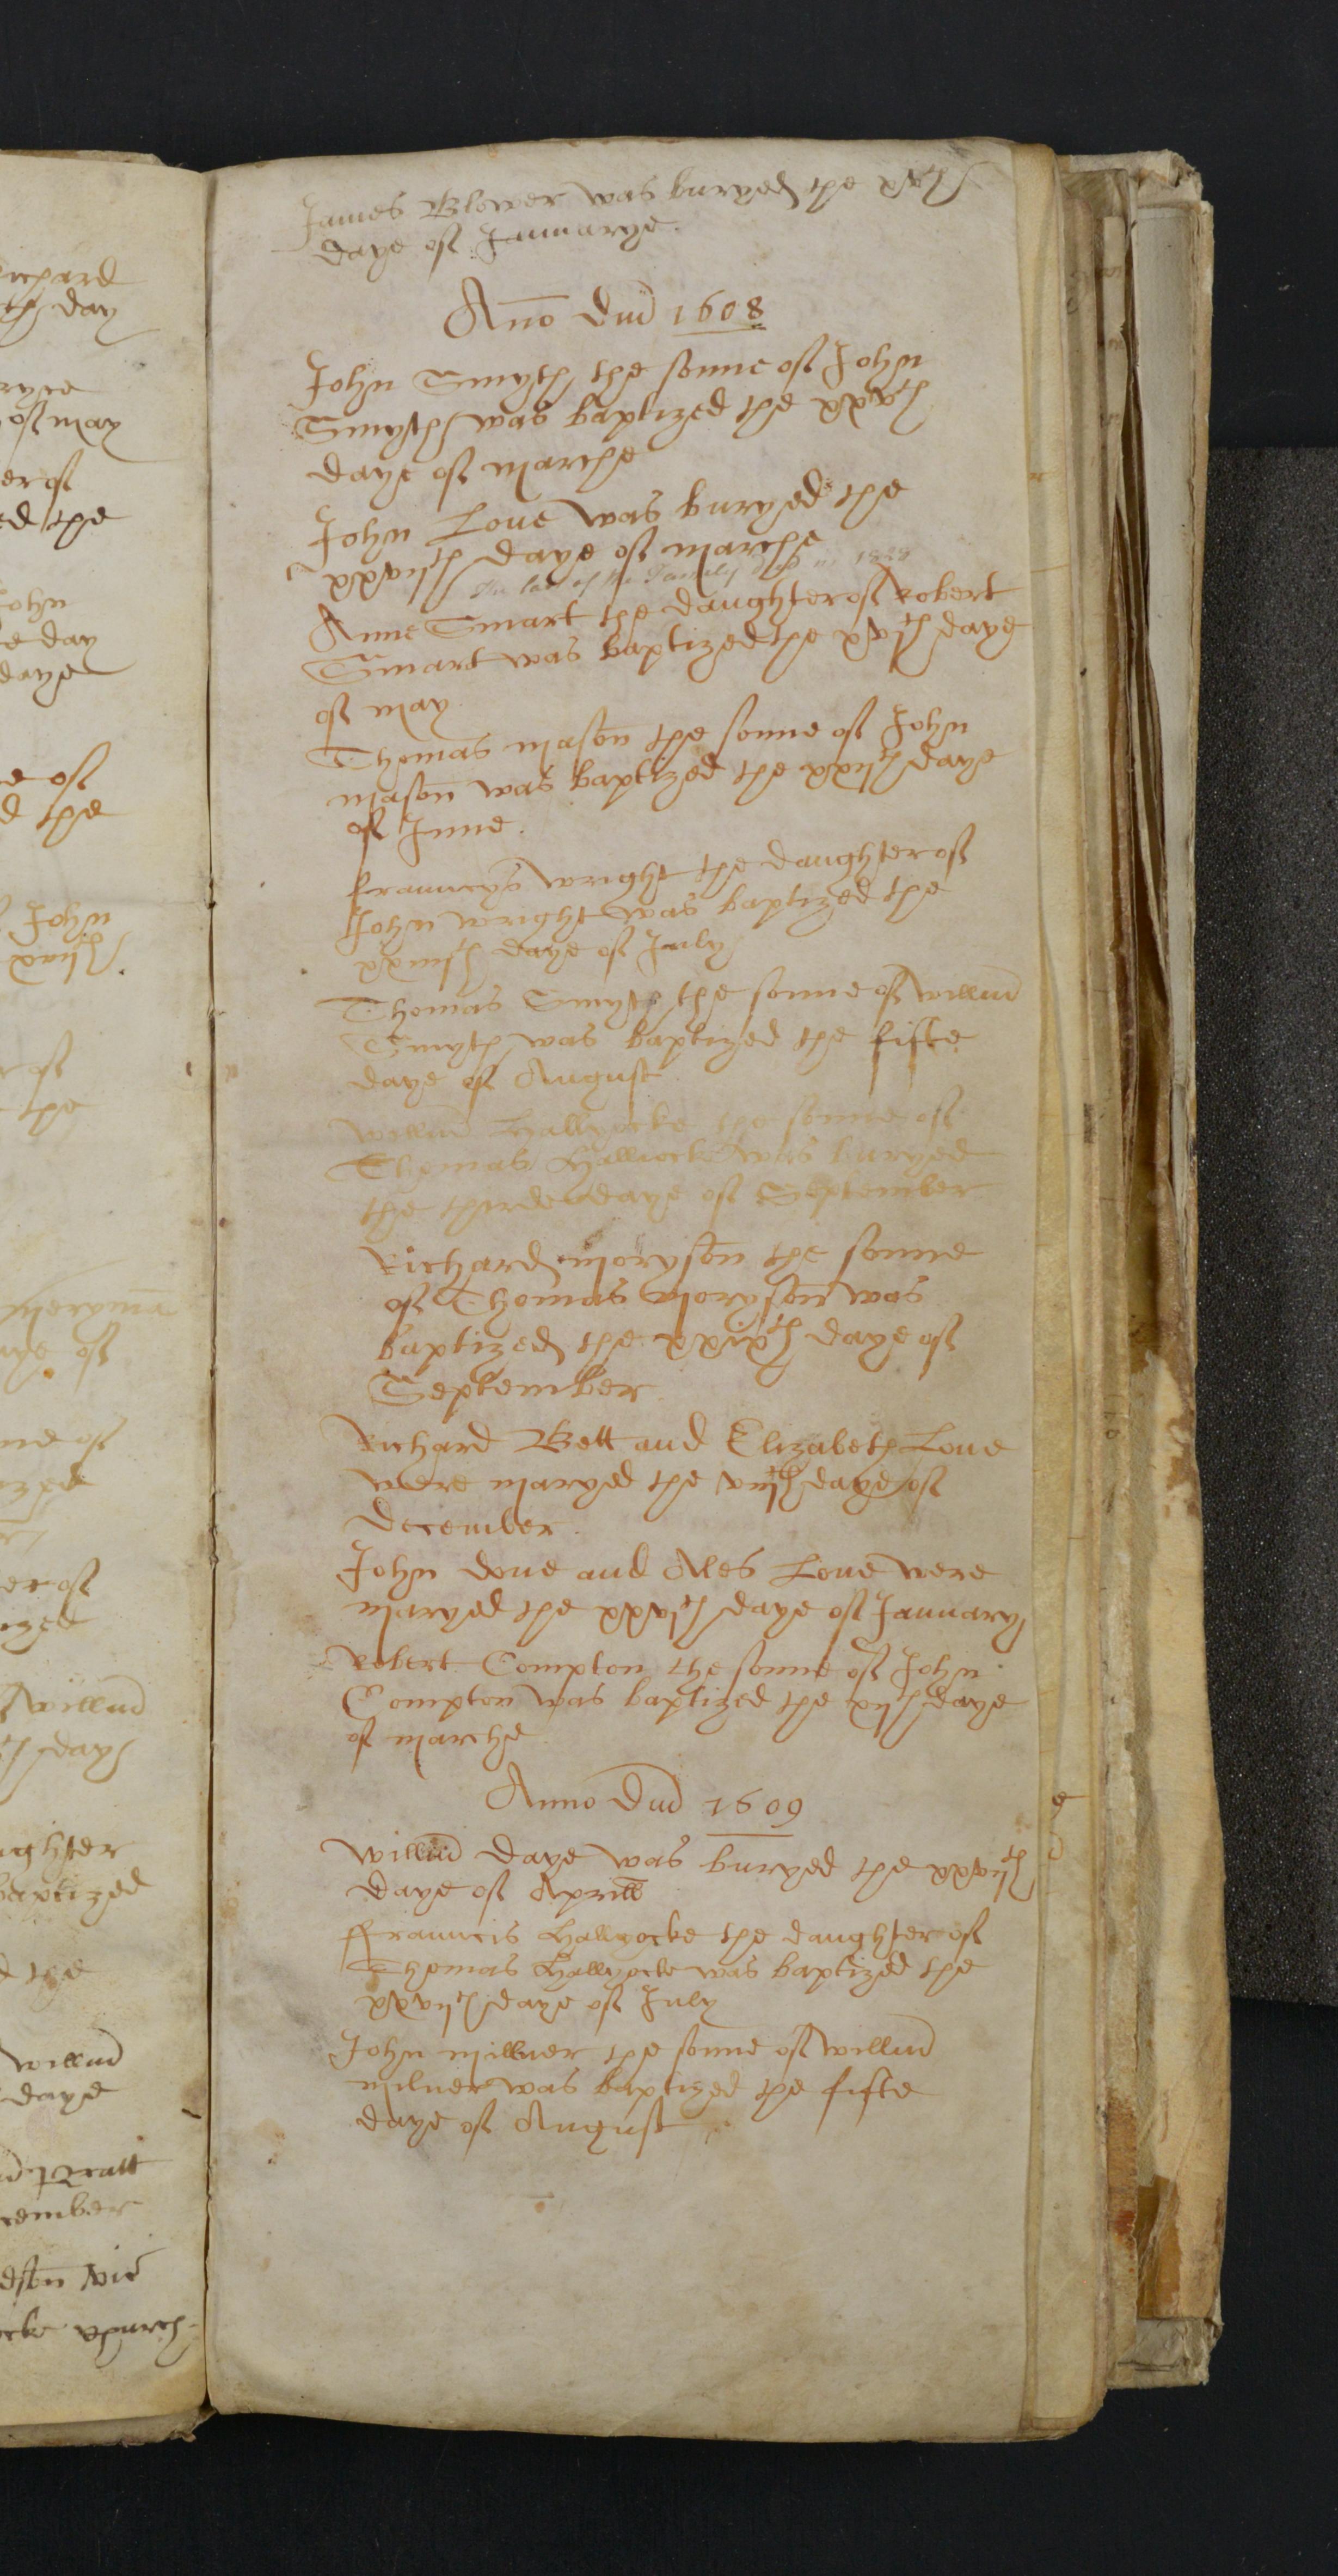 James Blower was buryed the xxth
daye of Januarye.
Ano Dni 1608
John Smyth the sonne of John
Smyth was baptized the xxxth
daye of Marche
John Loue was buryed the
xxviijth daye of Marche
the last of the Family died in 1828
Anne Smart the daughter of Robert
Smart was baptized the xvth daye
of May
Thomas Mason the sonne of John
Mason was baptized the xxijth daye
of June.
frauncys wright the daughter of
John wright was baptized the
xxiiijth daye of July
Thomas Smyth the sonne of willm
Smyth was baptized the fifte
daye of August
willm Hallyocke the sonne of
Thomas Hallyocke was buryed
the thirde daye of September
Richard Moryson the sonne
of Thomas Moryson was
baptized the xxixth daye of
September
Richard Bett and Elizabeth Loue
were maryed the viijth daye of
December.
John Doue and Ales Loue were
maryed the xxvjth daye of January
Robert Compton the sonne of John
Compton was baptized the xijth daye
of Marche
Anno Dni 1609
willm Daye was buryed the xxvijth
daye of Aprill
ffrauncis Hallyocke the daughter of
Thomas Hallyocke was baptized the
xxvijth daye of July
John Millner the sonne of willm
Milner was baptized the fifte
daye of August